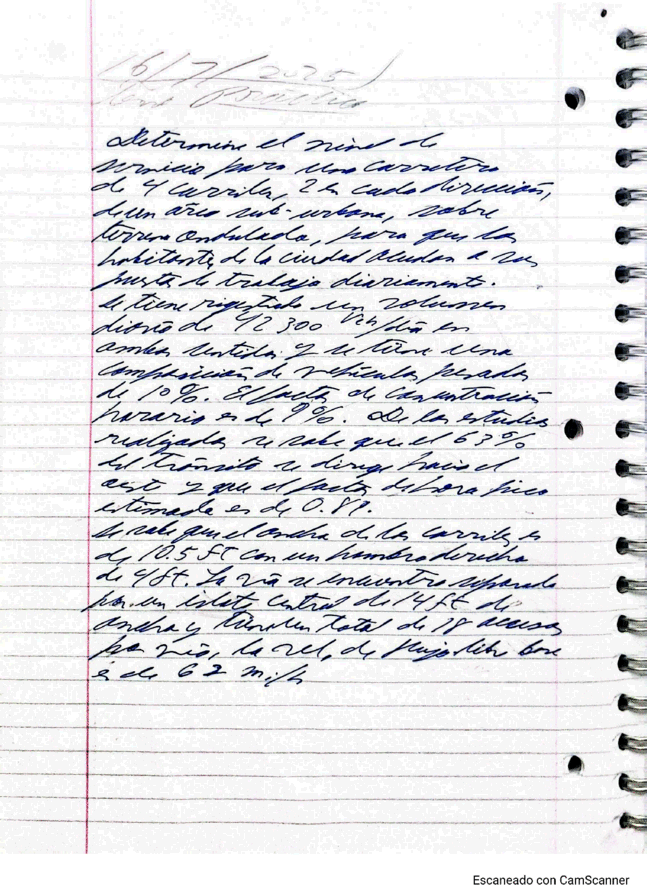 16/7/2025)
Práctica
Determine el nivel de
servicio para una carretera
de 4 carriles, 2 en cada dirección,
de un área sub-urbana, sobre
terreno ondulado, para que los
habitantes de la ciudad acudan a sus
puestos de trabajo diariamente.
Se tiene registrado un volumen
diario de 42 300 veh/día en
ambos sentidos y se tiene una
composición de vehículos pesados
de 10%. El factor de concentración
horario es de 9%. De los estudios
realizados se sabe que el 63%
del tránsito se dirige hacia el
este y que el factor de hora pico
estimada es de 0.89.
Se sabe que el ancho de los carriles es
de 10.5 ft con un hombro derecho
de 4 ft. La vía se encuentra separada
por un islote central de 14 ft de
ancho y tiene un total de 18 accesos
por vía, la vel. de flujo libre base
es de 62 mi/h